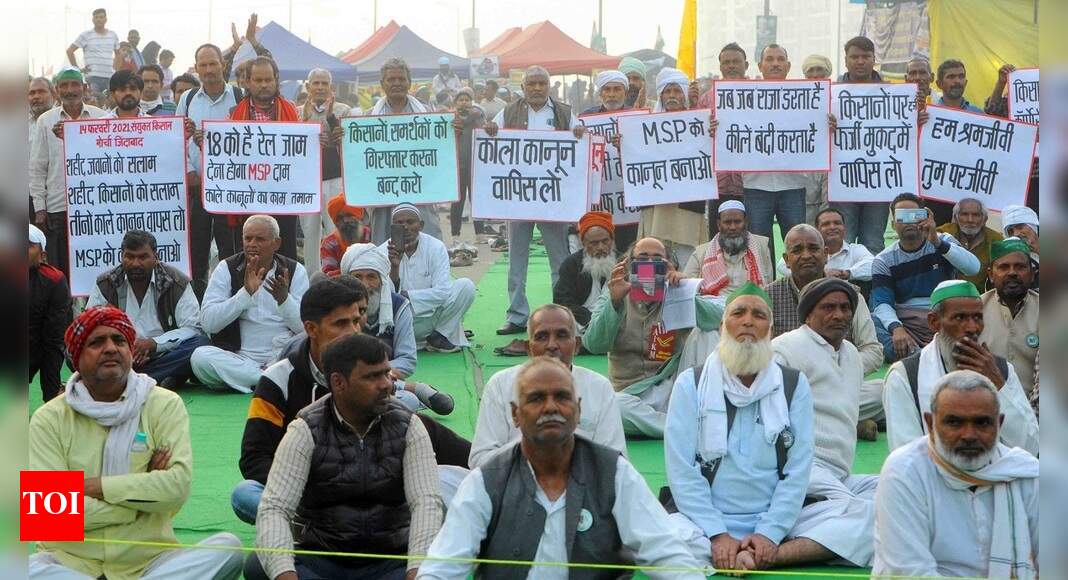 14 फरवरी 2021 संयुक्त किसान
मोर्चा जिंदाबाद
शहीद जवानों को सलाम
शहीद किसानों को सलाम
तीनों काले कानून वापस लो
MSP को
18 को है रेल जाम
देना होगा MSP दाम
काले कानूनों का काम तमाम
किसानों, समर्थकों को
गिरफ्तार करना
बन्द करो
काला कानून
वापिस लो
M.S.P. को
कानून बनाओ
जब जब राजा डरता है
कीलें बंदी करता है
किसानों पर
फर्जी मुकद्दमे
वापिस लो
हम श्रमजीवी
तुम परजीवी
TOI